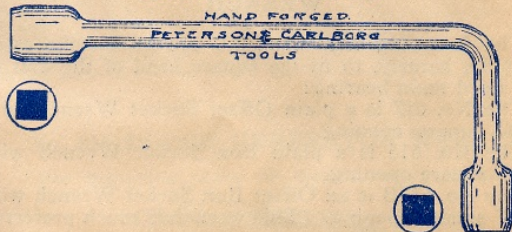 HAND FORGED.
PETERSON & CARLBORG
TOOLS